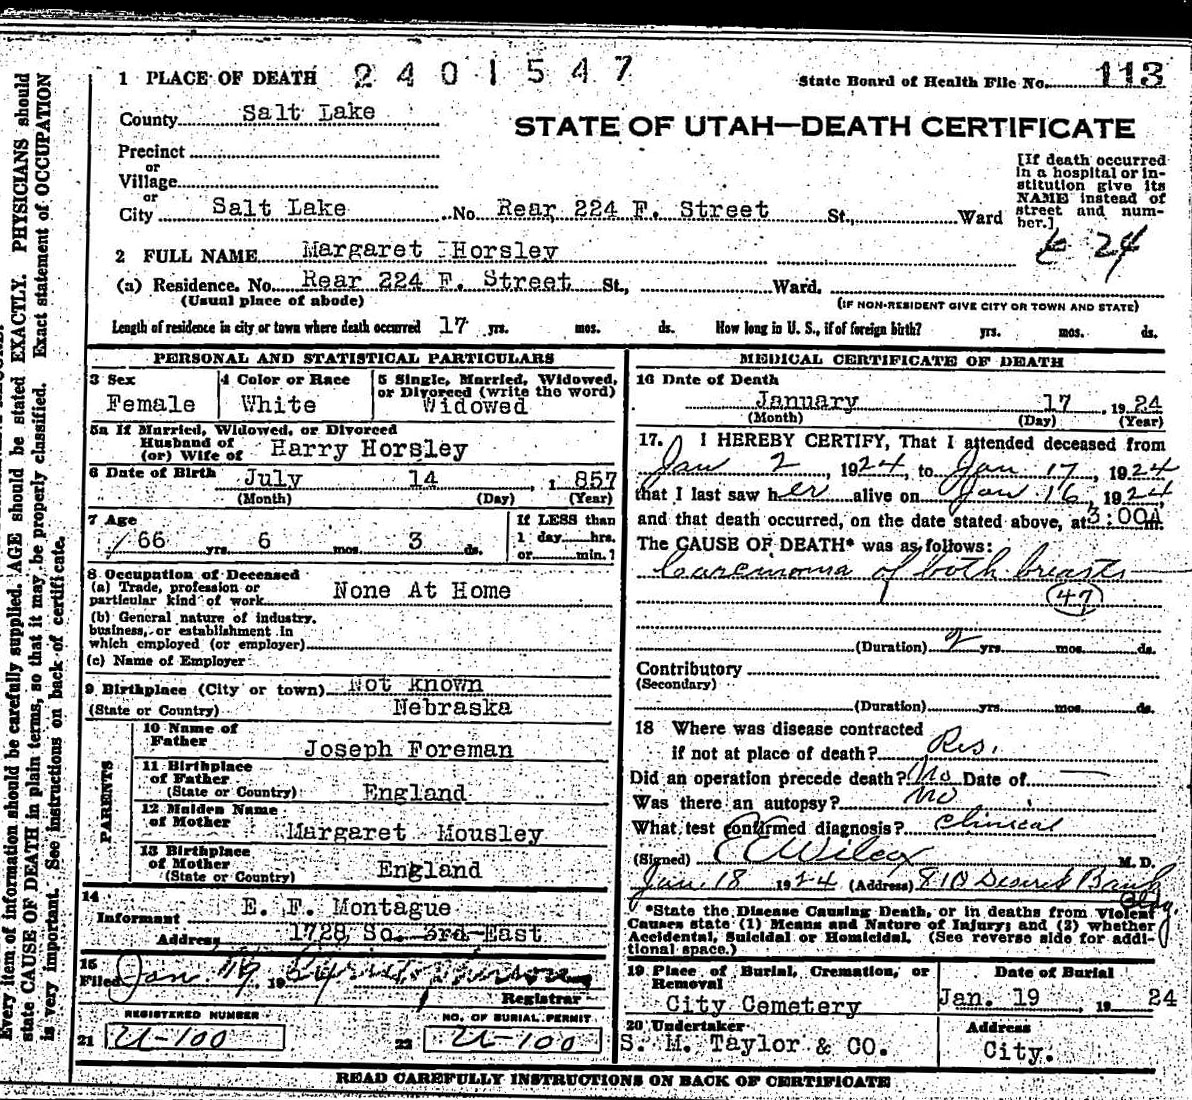 1 PLACE OF DEATH 2401547 State Board of Health File No. 113
County Salt Lake
STATE OF UTAH—DEATH CERTIFICATE
Precinct
or
Village
or
City Salt Lake No. Rear 224 F. Street St., Ward
[If death occurred
in a hospital or in-
stitution give its
NAME instead of
street and num-
ber.]
24
2 FULL NAME Margaret Horsley
(a) Residence. No. Rear 224 F. Street St., Ward.
(Usual place of abode) (IF NON-RESIDENT GIVE CITY OR TOWN AND STATE)
Length of residence in city or town where death occurred 17 yrs. mos. ds. How long in U. S., if of foreign birth? yrs. mos. ds.
PERSONAL AND STATISTICAL PARTICULARS
3 Sex 4 Color or Race 5 Single, Married, Widowed,
or Divorced (write the word)
Female White Widowed
5a If Married, Widowed, or Divorced
Husband of
(or) Wife of Harry Horsley
6 Date of Birth July 14, 1857
(Month) (Day) (Year)
7 Age If LESS than
66 yrs. 6 mos. 3 ds. 1 day hrs.
or min.?
8 Occupation of Deceased
(a) Trade, profession or
particular kind of work None At Home
(b) General nature of industry,
business, or establishment in
which employed (or employer)
(c) Name of Employer
9 Birthplace (City or town) Not known
(State or Country) Nebraska
PARENTS
10 Name of
Father Joseph Foreman
11 Birthplace
of Father
(State or Country) England
12 Maiden Name
of Mother Margaret Mousley
13 Birthplace
of Mother
(State or Country) England
14
Informant E. F. Montague
Address 1728 So. 3rd East
15
Filed Jan. 19 1924
Registrar
REGISTERED NUMBER NO. OF BURIAL PERMIT
21 U-100 22 U-100
MEDICAL CERTIFICATE OF DEATH
16 Date of Death
January 17, 1924
(Month) (Day) (Year)
17. I HEREBY CERTIFY, That I attended deceased from
Jan 2, 1924, to Jan 17, 1924
that I last saw her alive on Jan 16, 1924
and that death occurred, on the date stated above, at 3:00A m.
The CAUSE OF DEATH* was as follows:
Carcinoma of both breasts
47
(Duration) 2 yrs. mos. ds.
Contributory
(Secondary)
(Duration) yrs. mos. ds.
18 Where was disease contracted
if not at place of death? Res.
Did an operation precede death? No Date of —
Was there an autopsy? No
What test confirmed diagnosis? Clinical
(Signed) E C Wilcox M. D.
Jan. 18 1924 (Address) 810 Deseret Bank
Bldg.
*State the Disease Causing Death, or in deaths from Violent
Causes state (1) Means and Nature of Injury; and (2) whether
Accidental, Suicidal or Homicidal. (See reverse side for addi-
tional space.)
19 Place of Burial, Cremation, or
Removal Date of Burial
City Cemetery Jan. 19 1924
20 Undertaker Address
S. M. Taylor & CO. City.
READ CAREFULLY INSTRUCTIONS ON BACK OF CERTIFICATE
Every item of information should be carefully supplied. AGE should be stated EXACTLY. PHYSICIANS should
state CAUSE OF DEATH in plain terms, so that it may be properly classified. Exact statement of OCCUPATION
is very important. See instructions on back of certificate.